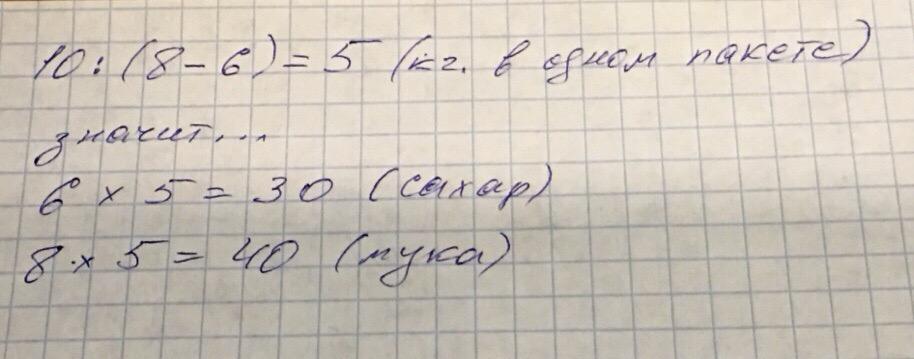 10 : (8 – 6) = 5 (кг. в одном пакете)
значит...
6 × 5 = 30 (сахар)
8 × 5 = 40 (мука)